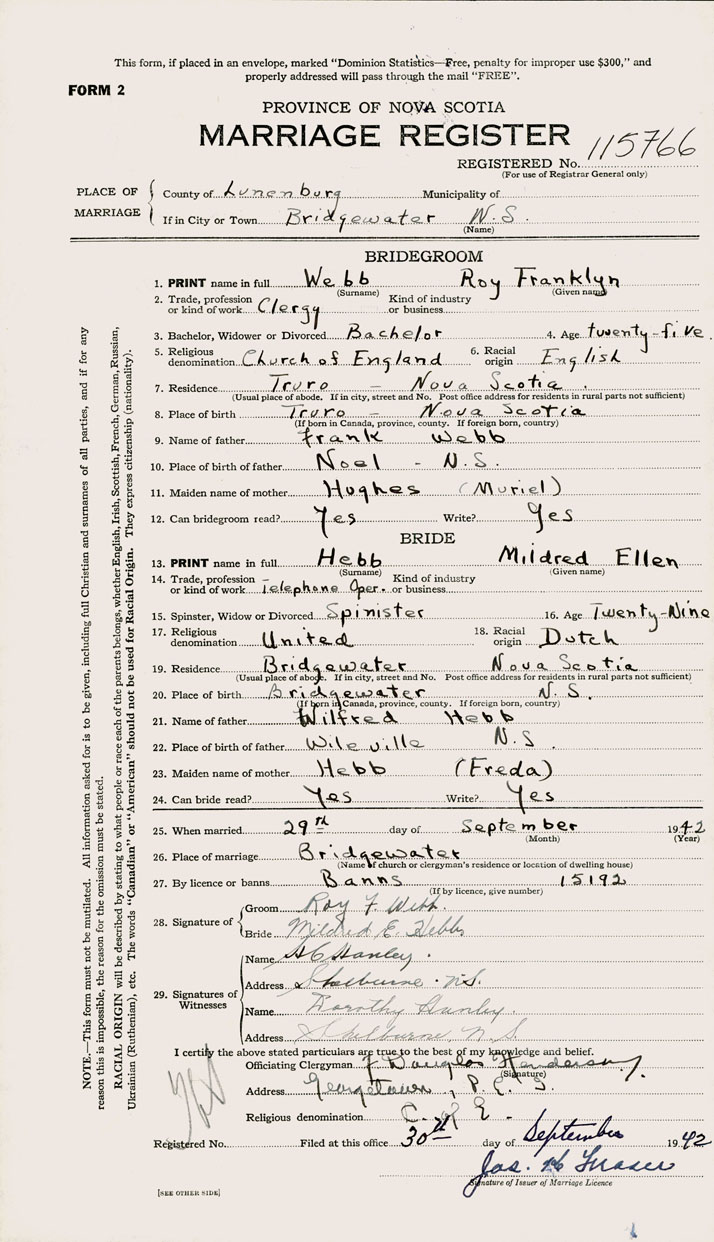 This form, if placed in an envelope, marked "Dominion Statistics—Free, penalty for improper use $300," and
properly addressed will pass through the mail "FREE".
FORM 2
PROVINCE OF NOVA SCOTIA
MARRIAGE REGISTER
REGISTERED No. 115766
(For use of Registrar General only)
PLACE OF MARRIAGE
County of Lunenburg Municipality of
If in City or Town Bridgewater N.S.
(Name)
BRIDEGROOM
1. PRINT name in full Webb Roy Franklyn
(Surname) (Given name)
2. Trade, profession or kind of work Clergy Kind of industry or business
3. Bachelor, Widower or Divorced Bachelor 4. Age twenty-five
5. Religious denomination Church of England 6. Racial origin English
7. Residence Truro - Nova Scotia.
(Usual place of abode. If in city, street and No. Post office address for residents in rural parts not sufficient)
8. Place of birth Truro - Nova Scotia
(If born in Canada, province, county. If foreign born, country)
9. Name of father Frank Webb
10. Place of birth of father Noel - N.S.
11. Maiden name of mother Hughes (Muriel)
12. Can bridegroom read? Yes Write? Yes
BRIDE
13. PRINT name in full Hebb Mildred Ellen
(Surname) (Given name)
14. Trade, profession or kind of work Telephone Oper. Kind of industry or business
15. Spinster, Widow or Divorced Spinister 16. Age Twenty-Nine
17. Religious denomination United 18. Racial origin Dutch
19. Residence Bridgewater Nova Scotia
(Usual place of abode. If in city, street and No. Post office address for residents in rural parts not sufficient)
20. Place of birth Bridgewater N.S.
(If born in Canada, province, county. If foreign born, country)
21. Name of father Wilfred Hebb
22. Place of birth of father Wileville N.S.
23. Maiden name of mother Hebb (Freda)
24. Can bride read? Yes Write? Yes
25. When married 29th day of September 1942
(Month) (Year)
26. Place of marriage Bridgewater
(Name of church or clergyman's residence or location of dwelling house)
27. By licence or banns Banns 15192
(If by licence, give number)
28. Signature of
Groom Roy F. Webb.
Bride Mildred E. Hebb
29. Signatures of Witnesses
Name Hanley.
Address Shelburne. N.S.
Name Dorothy Hanley.
Address Shelburne, N.S
I certify the above stated particulars are true to the best of my knowledge and belief.
Officiating Clergyman J Douglas Henderson
(Signature)
Address Georgetown, P.E.I.
Religious denomination C. of E.
Registered No. Filed at this office 30th day of September 1942
Jas. Fraser
Signature of Issuer of Marriage Licence
[SEE OTHER SIDE]
NOTE.—This form must not be mutilated. All information asked for is to be given, including full Christian and surnames of all parties, and if for any
reason this is impossible, the reason for the omission must be stated.
RACIAL ORIGIN will be described by stating to what people or race each of the parents belongs, whether English, Irish, Scottish, French, German, Russian,
Ukrainian (Ruthenian), etc. The words "Canadian" or "American" should not be used for Racial Origin. They express citizenship (nationality).